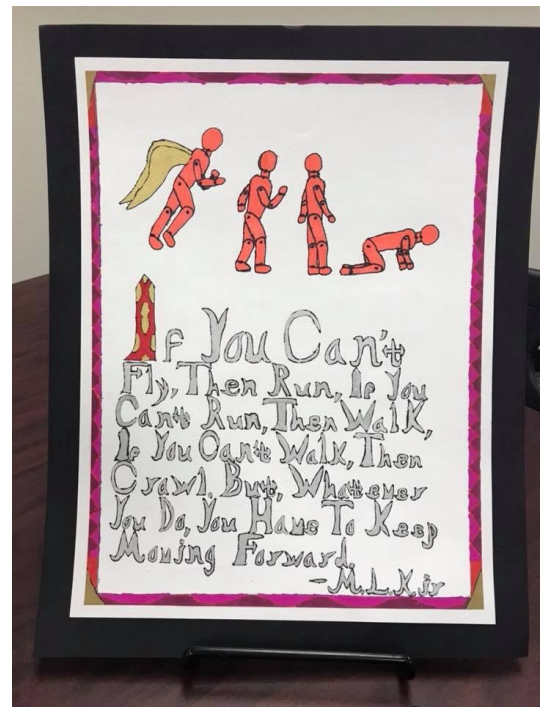 If You Can't
Fly, Then Run, If You
Can't Run, Then Walk,
If You Can't Walk, Then
Crawl. But, Whatever
You Do, You Have To Keep
Moving Forward.
-M.L.K.jr